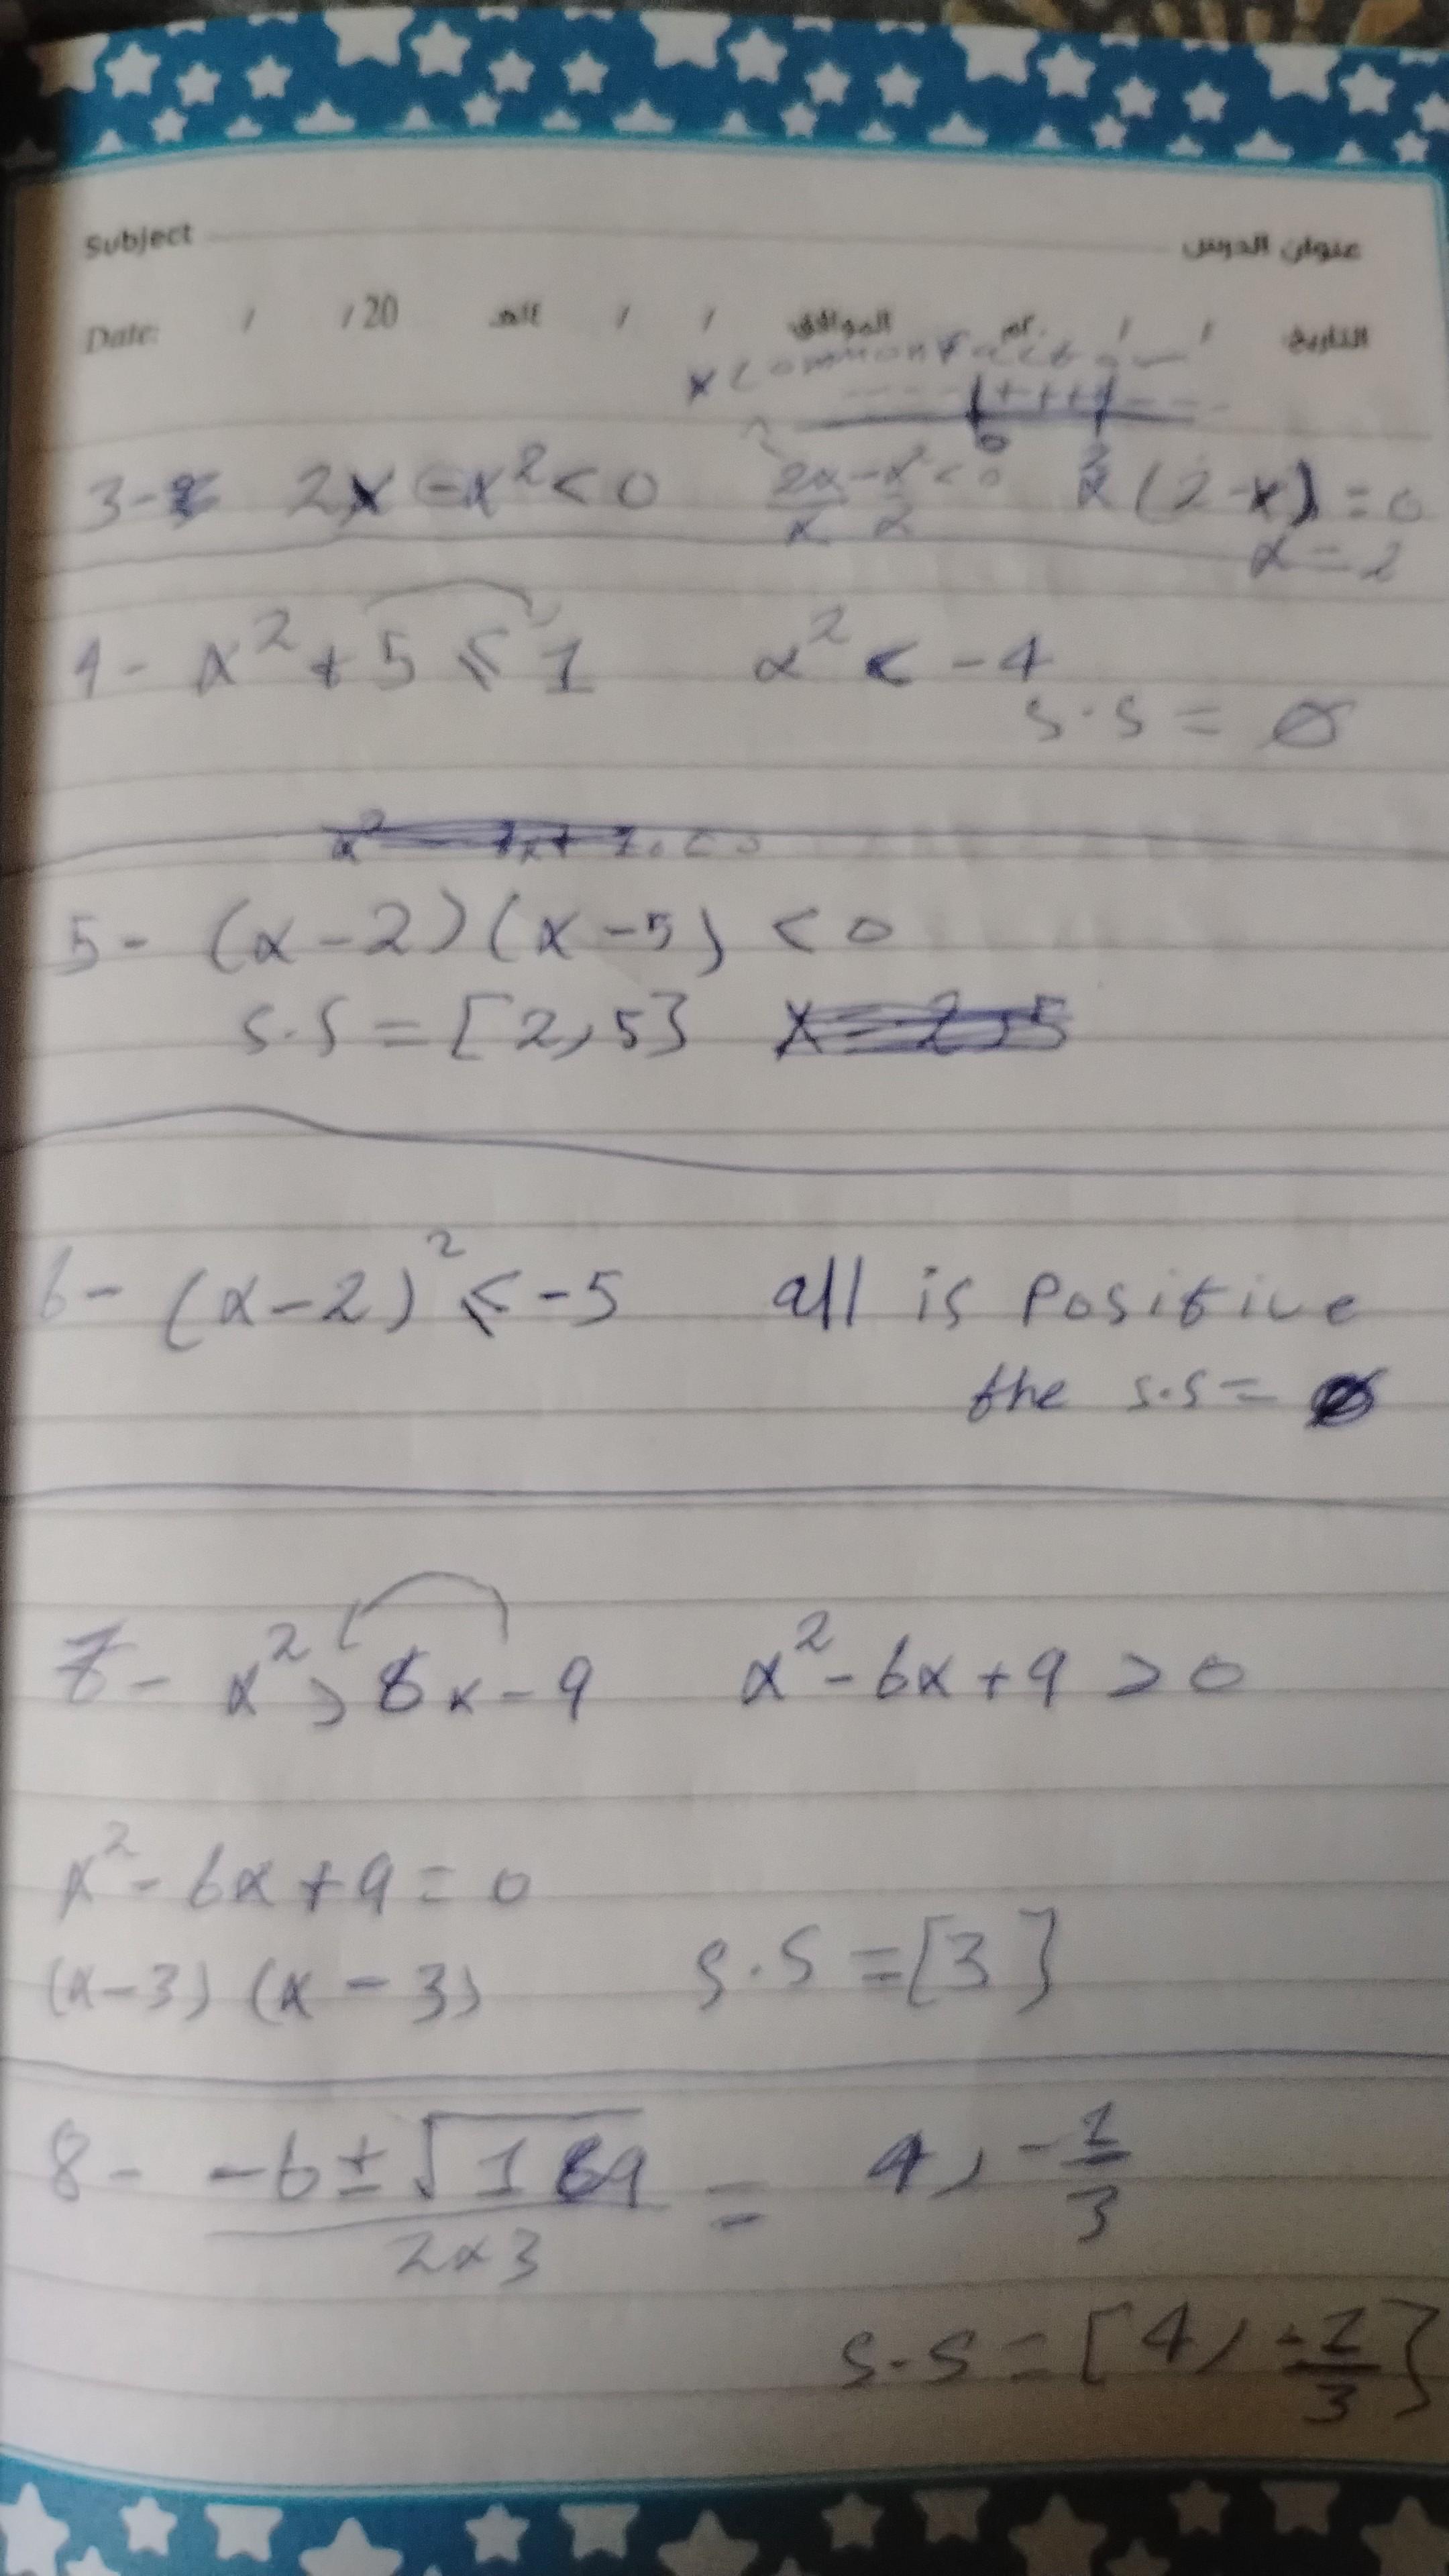 Subject عنوان الدرس
Date: / / 20 الموافق / / التاريخ / / 20م
x common factor
- - - + + + + - - -
0 2
3- 2x - x² < 0 2x - x² < 0 x(2-x) = 0
x 2 x = 2
4- x² + 5 ⩽ 1 x² < -4
S.S = ∅
5- (x-2)(x-5) < 0
S.S = [2, 5}
6- (x-2)² ⩽ -5 all is positive
the s.s = ∅
7- x² > 6x - 9 x² - 6x + 9 > 0
x² - 6x + 9 = 0
(x-3) (x-3) S.S = [3}
8- (-6 ± √169) / (2×3) = 4, -1/3
S.S = [4, -1/3}